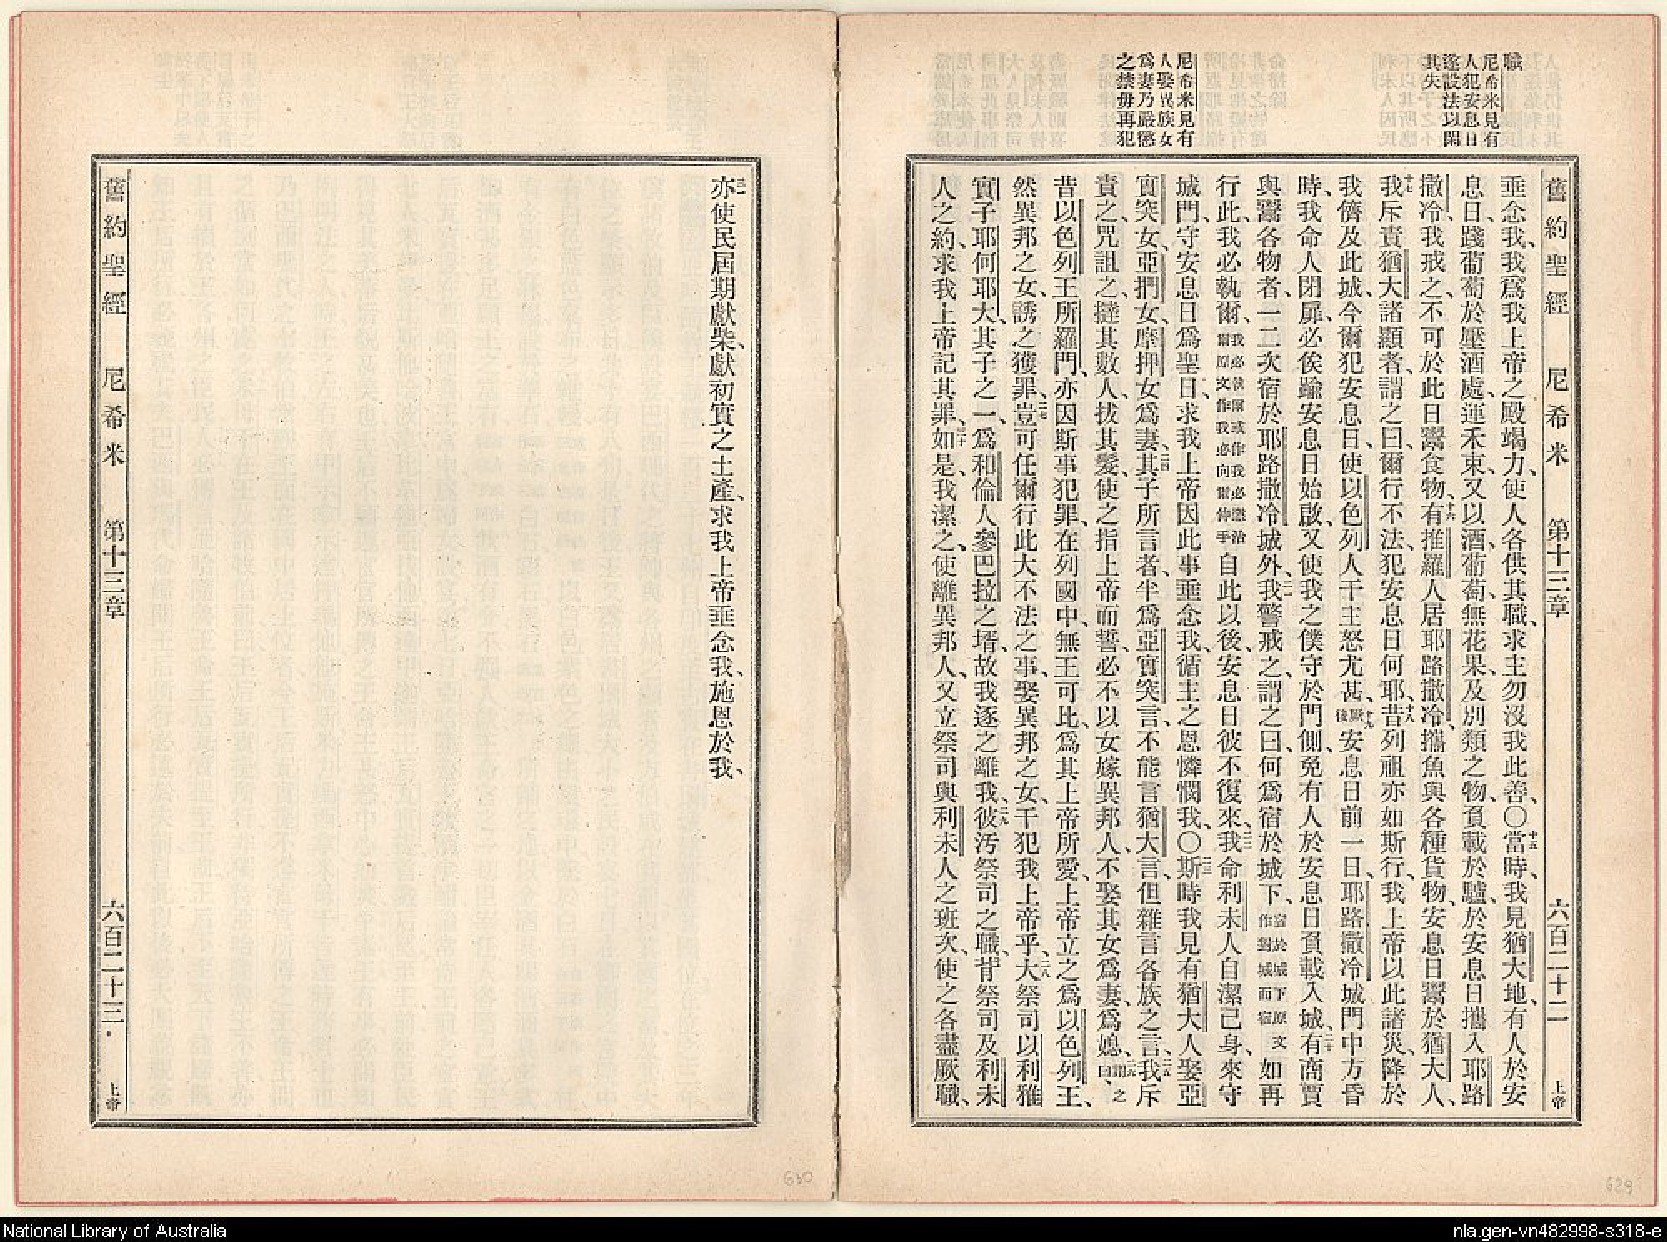 職
尼希米見有
人犯安息日
遂設法以閑
其失
尼希米見有
人娶異族女
爲妻乃嚴懲
之禁毋再犯
舊約聖經 尼希米 第十三章 六百二十二 上帝
垂念我、我爲我上帝之殿竭力、使人各供其職、求主勿沒我此善〇十五當時、我見猶大地、有人於安
息日、踐葡萄於壓酒處、運禾束、又以酒、葡萄、無花果、及別類之物、負載於驢、於安息日攜入耶路
撒冷、我戒之、不可於此日鬻食物、十六有推羅人居耶路撒冷、攜魚與各種貨物、安息日鬻於猶大人、
十七我斥責猶大諸顯者、謂之曰、爾行不法、犯安息日何耶、十八昔列祖亦如斯行、我上帝以此諸災降於
我儕及此城、今爾犯安息日、使以色列人干主怒尤甚、十九厥後安息日前一日、耶路撒冷城門中方昏
時、我命人閉扉、必俟踰安息日始啟、又使我之僕守於門側、免有人於安息日負載入城、二十有商賈
與鬻各物者、一二次宿於耶路撒冷城外、二一我警戒之、謂之曰、何爲宿於城下、宿於城下原文作對城而宿如再
行此、我必執爾、我必執爾或作我必懲治爾原文作我必向爾伸手自此以後、安息日彼不復來、二二我命利未人自潔己身、來守
城門、守安息日爲聖日、求我上帝因此事垂念我、循主之恩憐憫我〇二三斯時我見有猶大人娶亞
實突女、亞捫女、摩押女爲妻、二四其子所言者、半爲亞實突言、不能言猶大言、但雜言各族之言、二五我斥
責之、咒詛之、撻其數人、拔其髮、使之指上帝而誓、必不以女嫁異邦人、不娶其女爲妻、爲媳、二六謂之曰
昔以色列王所羅門、亦因斯事犯罪、在列國中、無王可比、爲其上帝所愛、上帝立之爲以色列王、
然異邦之女、誘之獲罪、二七豈可任爾行此大不法之事、娶異邦之女、干犯我上帝乎、二八大祭司以利雅
實子耶何耶大、其子之一、爲和倫人參巴拉之壻、故我逐之離我、二九彼汚祭司之職、背祭司及利未
人之約、求我上帝記其罪、三十如是、我潔之、使離異邦人、又立祭司與利未人之班次、使之各盡厥職、
629
三一亦使民屆期獻柴、獻初實之土產、求我上帝垂念我、施恩於我、
舊約聖經 尼希米 第十三章 六百二十三 上帝
630
National Library of Australia
nla.gen-vn482998-s318-e